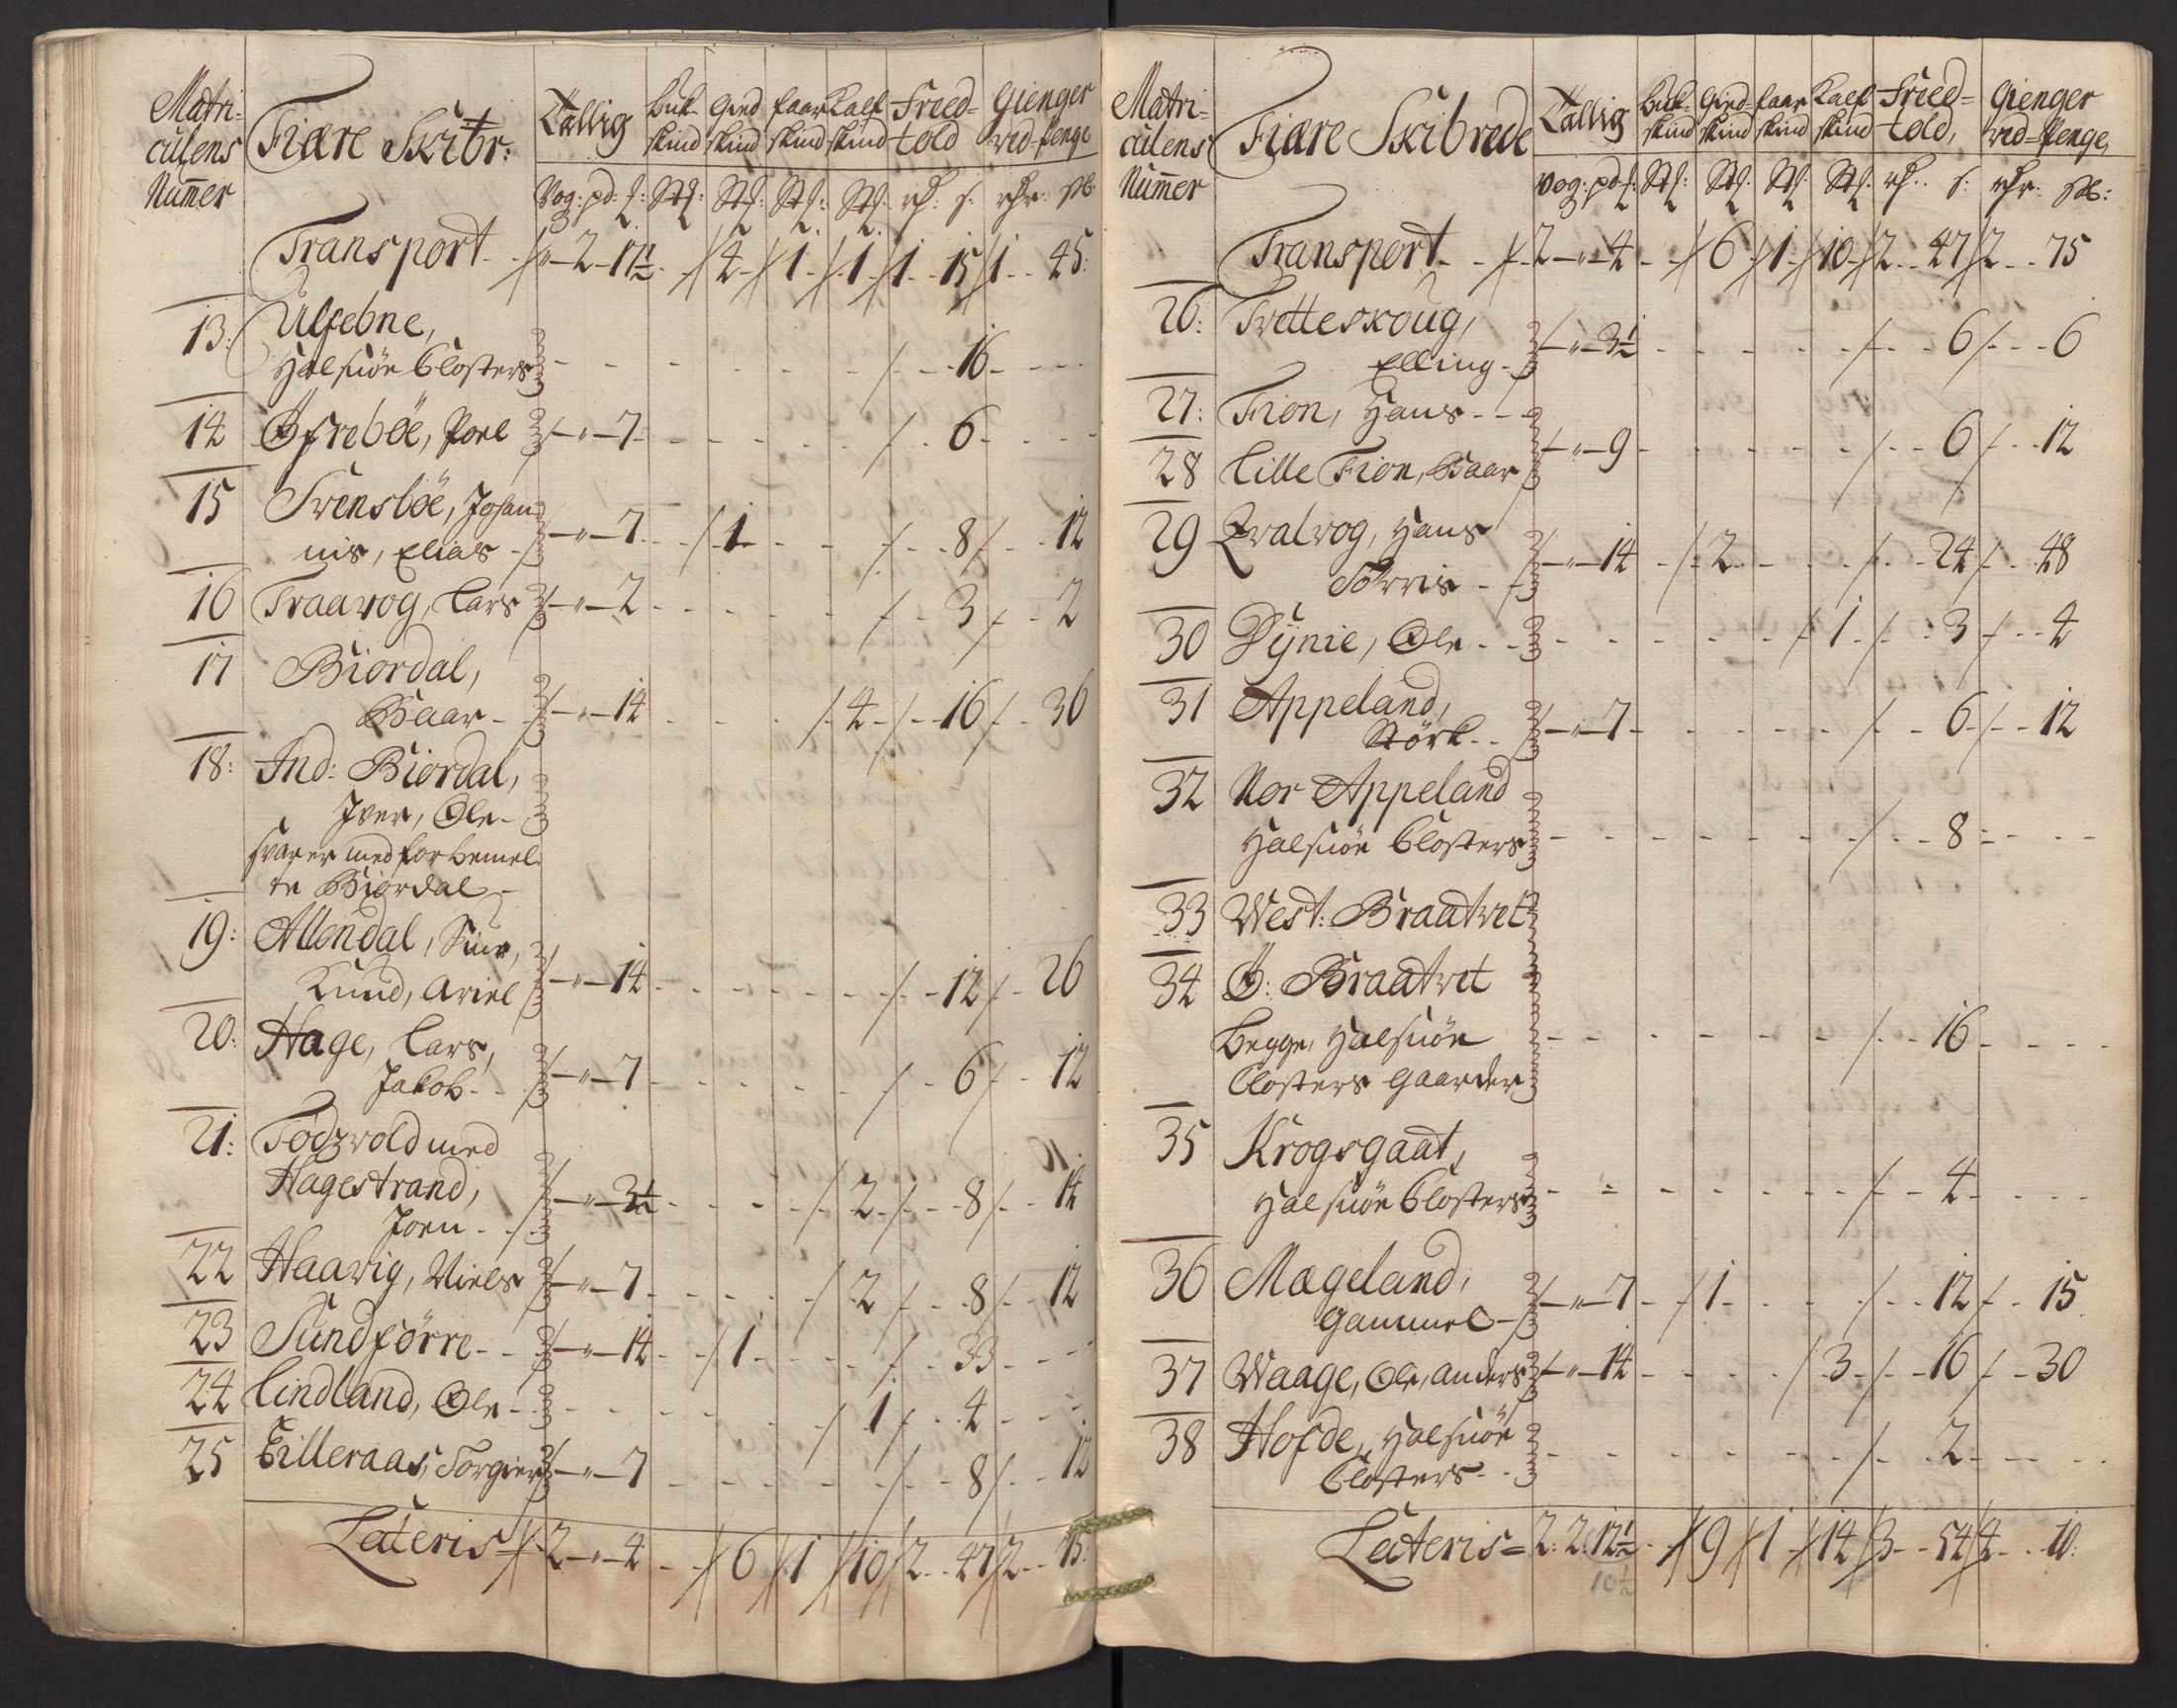 Matri-
culens
Nummer
Fiære Skibr:
Tallig
Buk-
skind
Gied
skind
faar
skind
Kalf
skind
Fried-
told
Gienger
ved-penge
Vog: pd: Stk: Stk: Stk: Stk: rd: s: rdr: sk:
Transport - - 2 - 17½ - 4 - 1 - 1 - 1 - 15 1 - 45
13: Ulfebne,
Halsnöe Closters - - - 16 - - -
14 Öfreböe, Poel - " - 7 - - 6 - - -
15 Svensböe, Johan-
nis, Elias - " - 7 - 1 - - 8 - 12
16 Traavog, Lars - " - 2 - - 3 - 2
17 Biordal,
Baar - " - 14 - - 4 - 16 - 36
18: Ind: Biordal,
Iver, Ole -
svarer med forbemel-
te Biordal -
19: Allendal, Siur,
Knud, Ariel - " - 14 - - 12 - 26
20: Hage, Lars,
Jakob - " - 7 - - 6 - 12
21: Todzvold med
Hagestrand,
Joen - " - 3½ - - 2 - 8 - 14
22 Haavig, Niels - " - 7 - - 2 - 8 - 12
23 Sundförre - " - 14 - 1 - - 33 - - -
24 Lindland, Ole - - - 1 - 4 - - -
25 Eilleraas, Torgier - " - 7 - - 8 - 12
Lateris - 2 - " - 4 - 6 1 10 2 - 47 2 - 75
Matri-
culens
Nummer
Fiære Skibrede
Tallig
Buk-
skind
Gied-
skind
faar
skind
Kalf
skind
Fried-
told,
Gienger
ved-Penge,
Vog: pd: Stk: Stk: Stk: Stk: rd: s: rdr: sk:
Transport - - 2 - " - 4 - - 6 - 1 - 10 - 2 - 47 2 - 75
26: Tvetteskoug,
Elling - " - 3½ - - 6 - 6
27: Fion, Hans - -
28 Lille Fion, Baar - " - 9 - - 6 - 12
29 Qvalvog, Hans
Torris - " - 14 - 2 - - 24 - 48
30 Dÿnie, Ole - - - 1 - 3 - 4
31 Appeland,
Störk - " - 7 - - 6 - 12
32 Nor Appeland
Halsnöe Closters - - - 8 - - -
33 West: Braatvet
34 Ö: Braatvet
Begge, Halsnöe
Closters Gaarder - - - 16 - - -
35 Krogsgaat,
Halsnöe Closters - - - 4 - - -
36 Mageland,
Gammel - " - 7 - 1 - - 12 - 15
37 Waage, Ole, Anders - " - 14 - - 3 - 16 - 30
38 Hofde, Halsnöe
Closters - - - 2 - - -
Lateris = 2: 2: 12½ - 9 1 14 3 - 54 4 - 10:
10½